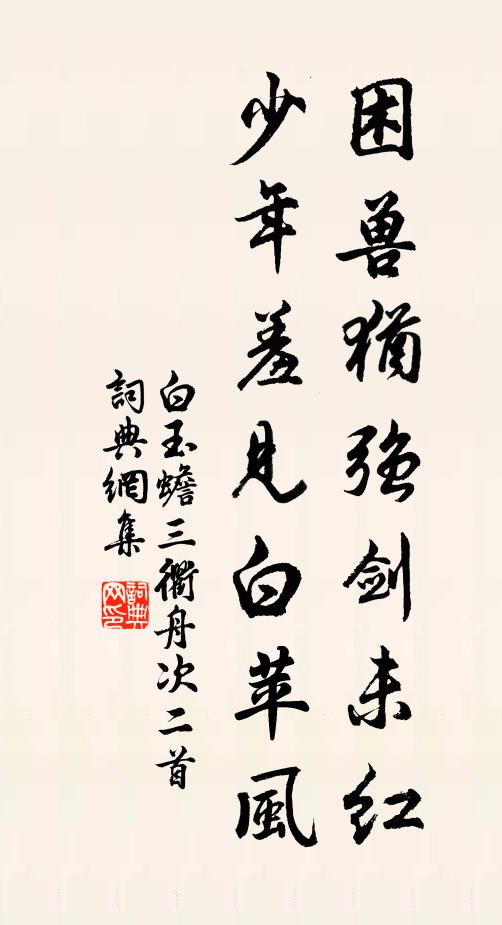 困兽猶强剑未红
少年羞見白苹風
白玉蟾三衢舟次二首
詞典網集
詞典网印